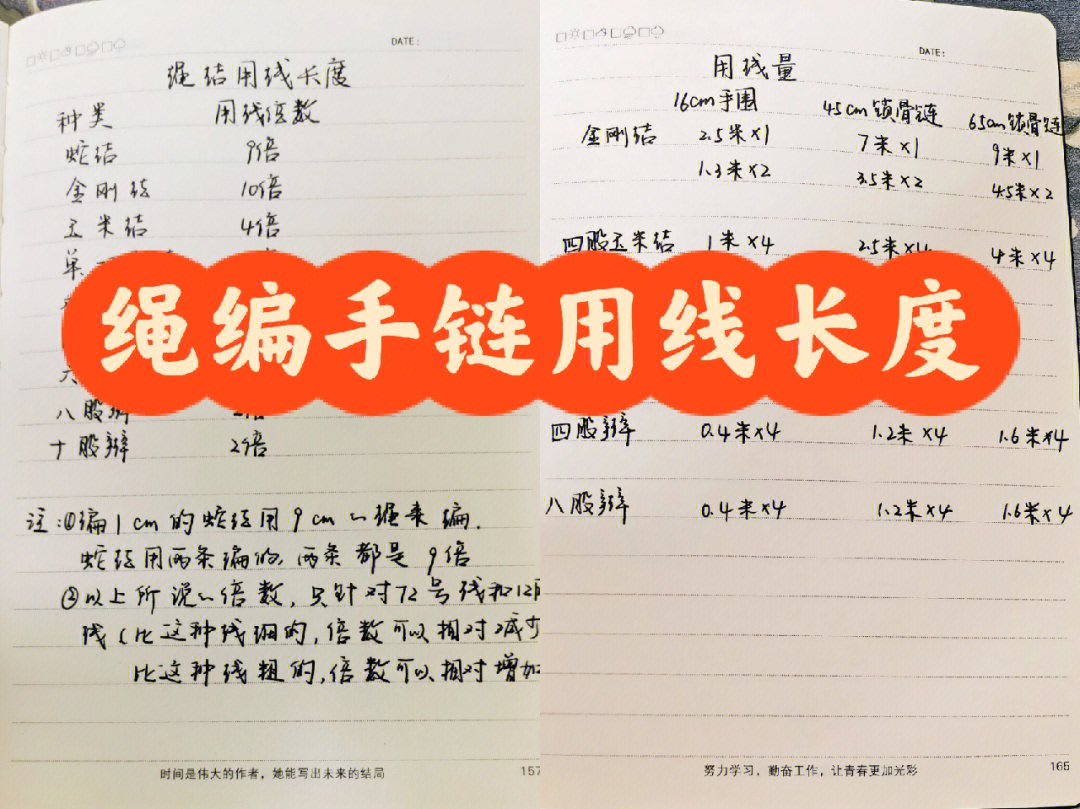 DATE:
绳结用线长度
种类 用线倍数
蛇结 9倍
金刚结 10倍
玉米结 4倍
单
绳编手链用线长度
八股辫
十股辫 2倍
注:①编1cm的蛇结用9cm的绳来编.
蛇结用两条编的,两条都是9倍
②以上所说的倍数,只针对72号线和12
线(比这种线细的,倍数可以相对减少
比这种线粗的,倍数可以相对增加
时间是伟大的作者,她能写出未来的结局
157
DATE:
用线量
16cm手围 45cm锁骨链 65cm锁骨链
金刚结 2.5米×1 7米×1 9米×1
1.3米×2 3.5米×2 4.5米×2
四股玉米结 1米×4 2.5米×4 4米×4
四股辫 0.4米×4 1.2米×4 1.6米×4
八股辫 0.4米×4 1.2米×4 1.6米×4
努力学习,勤奋工作,让青春更加光彩
165